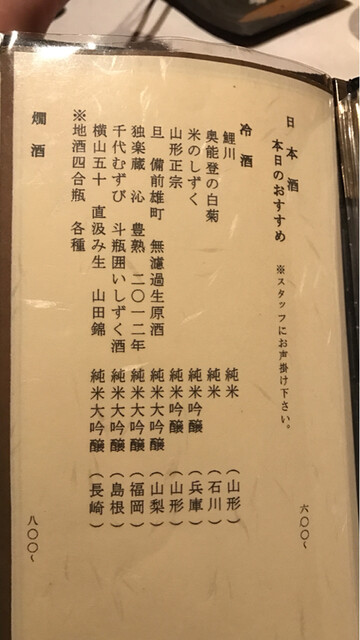 日本酒
本日のおすすめ ※スタッフにお声掛け下さい。 六〇〇~
冷酒
鯉川 純米 (山形)
奥能登の白菊 純米 (石川)
米のしずく 純米吟醸 (兵庫)
山形正宗 純米吟醸 (山形)
旦 備前雄町 無濾過生原酒 純米大吟醸 (山梨)
独楽蔵 沁 豊熟 二〇一二年 純米大吟醸 (福岡)
千代むすび 斗瓶囲いしずく酒 純米大吟醸 (島根)
横山五十 直汲み生 山田錦 純米大吟醸 (長崎)
※地酒四合瓶 各種
燗酒 八〇〇~